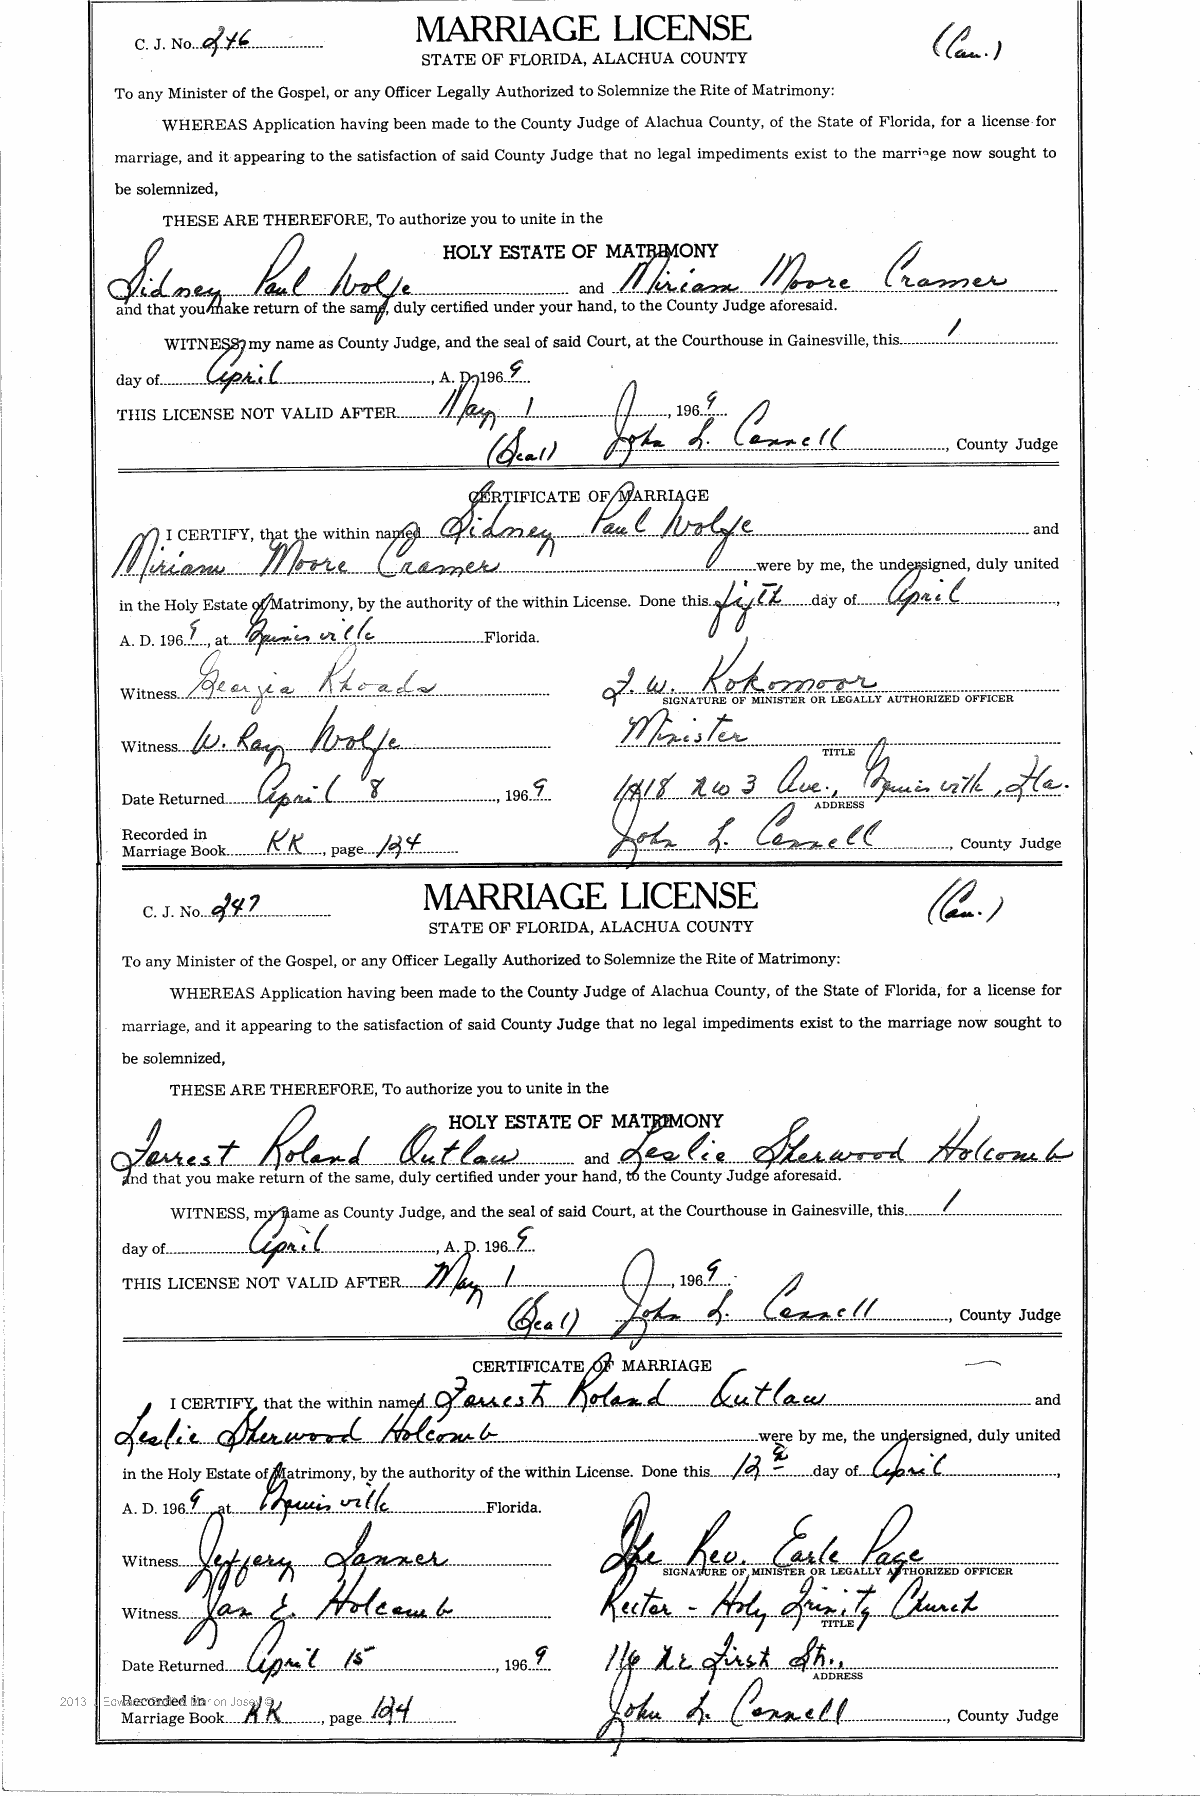 C. J. No. 246
MARRIAGE LICENSE
(Cau.)
STATE OF FLORIDA, ALACHUA COUNTY
To any Minister of the Gospel, or any Officer Legally Authorized to Solemnize the Rite of Matrimony:
WHEREAS Application having been made to the County Judge of Alachua County, of the State of Florida, for a license for
marriage, and it appearing to the satisfaction of said County Judge that no legal impediments exist to the marriage now sought to
be solemnized,
THESE ARE THEREFORE, To authorize you to unite in the
HOLY ESTATE OF MATRIMONY
Sidney Paul Wolfe and Miriam Moore Cramer
and that you make return of the same, duly certified under your hand, to the County Judge aforesaid.
WITNESS, my name as County Judge, and the seal of said Court, at the Courthouse in Gainesville, this 1
day of April, A. D. 1969
THIS LICENSE NOT VALID AFTER May 1, 1969
(Seal) John L. Connell, County Judge
CERTIFICATE OF MARRIAGE
I CERTIFY, that the within named Sidney Paul Wolfe and
Miriam Moore Cramer were by me, the undersigned, duly united
in the Holy Estate of Matrimony, by the authority of the within License. Done this fifth day of April,
A. D. 1969, at Gainesville Florida.
Witness Georgia Rhoads
F. W. Kokomoor
SIGNATURE OF MINISTER OR LEGALLY AUTHORIZED OFFICER
Witness W. Ray Wolfe
Minister
TITLE
Date Returned April 8, 1969
1418 NW 3 Ave., Gainesville, Fla.
ADDRESS
Recorded in
Marriage Book KK, page 124
John L. Connell, County Judge
C. J. No. 247
MARRIAGE LICENSE
(Cau.)
STATE OF FLORIDA, ALACHUA COUNTY
To any Minister of the Gospel, or any Officer Legally Authorized to Solemnize the Rite of Matrimony:
WHEREAS Application having been made to the County Judge of Alachua County, of the State of Florida, for a license for
marriage, and it appearing to the satisfaction of said County Judge that no legal impediments exist to the marriage now sought to
be solemnized,
THESE ARE THEREFORE, To authorize you to unite in the
HOLY ESTATE OF MATRIMONY
Forrest Roland Outlaw and Leslie Sherwood Holcomb
and that you make return of the same, duly certified under your hand, to the County Judge aforesaid.
WITNESS, my name as County Judge, and the seal of said Court, at the Courthouse in Gainesville, this 1
day of April, A. D. 1969
THIS LICENSE NOT VALID AFTER May 1, 1969
(Seal) John L. Connell, County Judge
CERTIFICATE OF MARRIAGE
I CERTIFY, that the within named Forrest Roland Outlaw and
Leslie Sherwood Holcomb were by me, the undersigned, duly united
in the Holy Estate of Matrimony, by the authority of the within License. Done this 12 day of April,
A. D. 1969 at Gainesville Florida.
Witness Jeffery Lanner
The Rev. Earle Page
SIGNATURE OF MINISTER OR LEGALLY AUTHORIZED OFFICER
Witness Jan E. Holcomb
Rector - Holy Trinity Church
TITLE
Date Returned April 15, 1969
116 NE First St.,
ADDRESS
2013
Recorded in
Marriage Book KK, page 124
John L. Connell, County Judge